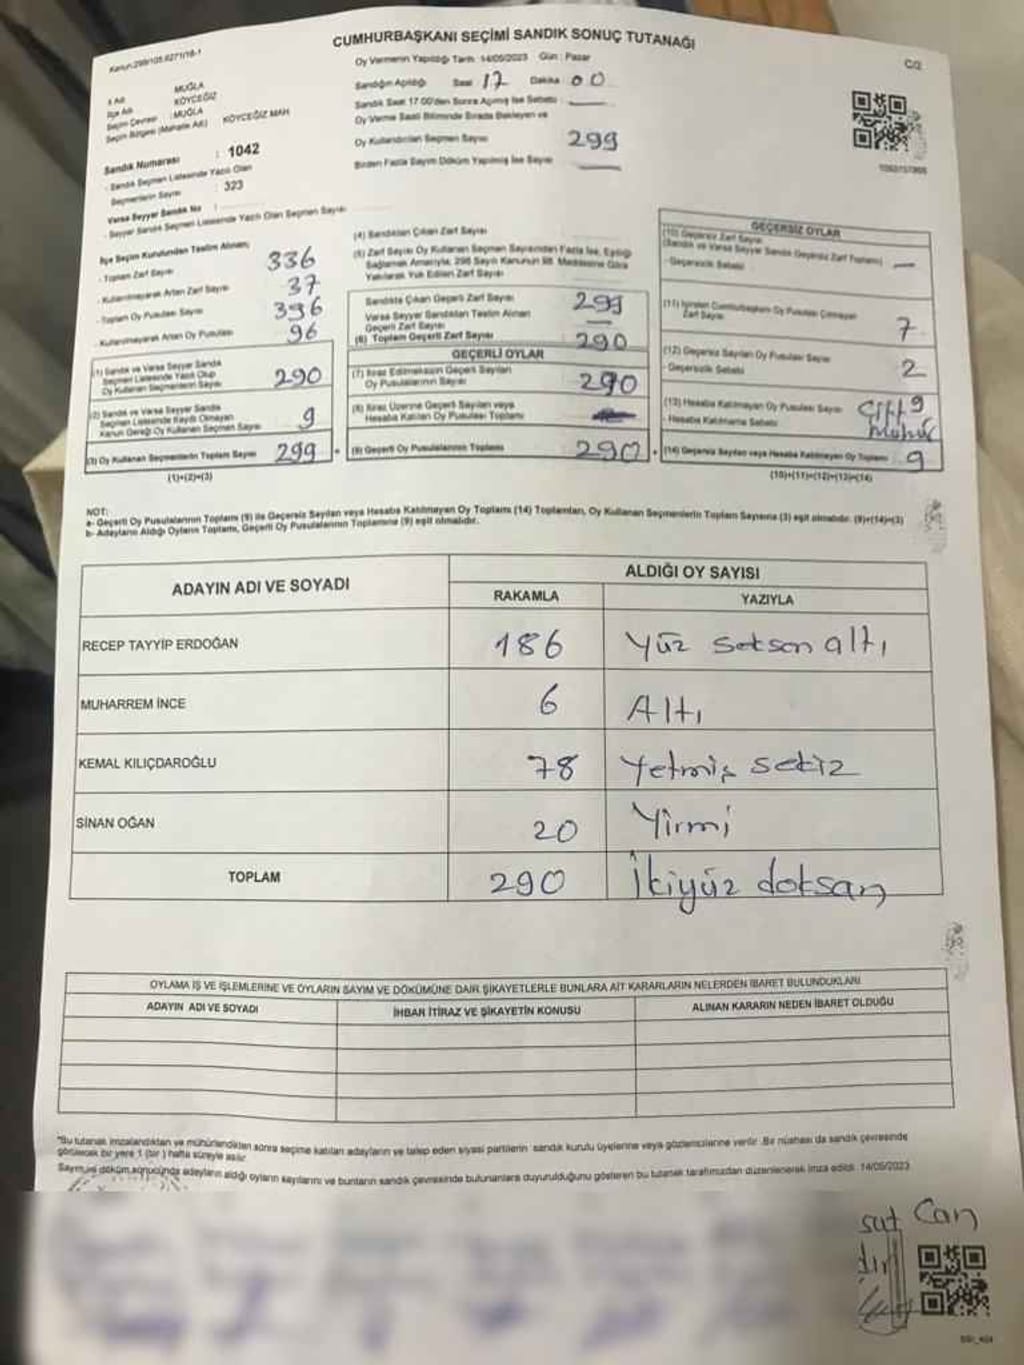 CUMHURBAŞKANI SEÇİMİ SANDIK SONUÇ TUTANAĞI
C/2
Oy Vermenin Yapıldığı Tarih: 14/05/2023 Gün: Pazar
Sandığın Açıldığı Saat 17 Dakika 00
Sandık Saat 17:00'den Sonra Açılmış İse Sebebi:
Oy Verme Saati Bitiminde Sırada Bekleyen ve
Oy Kullandırılan Seçmen Sayısı 299
Birden Fazla Sayım Döküm Yapılmış İse Sayısı
İl Adı MUĞLA
İlçe Adı KÖYCEĞİZ
Seçim Çevresi : MUĞLA
Seçim Bölgesi (Mahalle Adı) KÖYCEĞİZ MAH
Sandık Numarası : 1042
- Sandık Seçmen Listesinde Yazılı Olan
Seçmenlerin Sayısı : 323
Varsa Seyyar Sandık No :
- Seyyar Sandık Seçmen Listesinde Yazılı Olan Seçmen Sayısı
İlçe Seçim Kurulundan Teslim Alınan;
- Toplam Zarf Sayısı 336
- Kullanılmayarak Artan Zarf Sayısı 37
- Toplam Oy Pusulası Sayısı 396
- Kullanılmayarak Artan Oy Pusulası 96
(1) Sandık ve Varsa Seyyar Sandık
Seçmen Listesinde Yazılı Olup
Oy Kullanan Seçmenlerin Sayısı 290
(2) Sandık ve Varsa Seyyar Sandık
Seçmen Listesinde Kaydı Olmayan
Kanun Gereği Oy Kullanan Seçmen Sayısı 9
(3) Oy Kullanan Seçmenlerin Toplam Sayısı 299
(1)+(2)=(3)
(4) Sandıktan Çıkan Zarf Sayısı
(5) Zarf Sayısı Oy Kullanan Seçmen Sayısından Fazla İse, Eşitliği
Sağlamak Amacıyla, 298 Sayılı Kanunun 98. Maddesine Göre
Yakılarak Yok Edilen Zarf Sayısı
Sandıkta Çıkan Geçerli Zarf Sayısı 299
Varsa Seyyar Sandıktan Teslim Alınan
Geçerli Zarf Sayısı
(6) Toplam Geçerli Zarf Sayısı 290
GEÇERLİ OYLAR
(7) İtiraz Edilmeksizin Geçerli Sayılan
Oy Pusulalarının Sayısı 290
(8) İtiraz Üzerine Geçerli Sayılan veya
Hesaba Katılan Oy Pusulası Toplamı
(9) Geçerli Oy Pusulalarının Toplamı 290
GEÇERSİZ OYLAR
(10) Geçersiz Zarf Sayısı
(Sandık ve Varsa Seyyar Sandık Geçersiz Zarf Toplamı)
- Geçersizlik Sebebi
(11) İçinden Cumhurbaşkanı Oy Pusulası Çıkmayan
Zarf Sayısı 7
(12) Geçersiz Sayılan Oy Pusulası Sayısı 2
- Geçersizlik Sebebi
(13) Hesaba Katılmayan Oy Pusulası Sayısı Çift 9
- Hesaba Katılmama Sebebi Mühür
(14) Geçersiz Sayılan veya Hesaba Katılmayan Oy Toplamı 9
(10)+(11)+(12)+(13)=(14)
NOT:
a- Geçerli Oy Pusulalarının Toplamı (9) ile Geçersiz Sayılan veya Hesaba Katılmayan Oy Toplamı (14) Toplamları, Oy Kullanan Seçmenlerin Toplam Sayısına (3) eşit olmalıdır. (9)+(14)=(3)
b- Adayların Aldığı Oyların Toplamı, Geçerli Oy Pusulalarının Toplamına (9) eşit olmalıdır.
ADAYIN ADI VE SOYADI
ALDIĞI OY SAYISI
RAKAMLA YAZIYLA
RECEP TAYYİP ERDOĞAN 186 Yüz seksen altı
MUHARREM İNCE 6 Altı
KEMAL KILIÇDAROĞLU 78 Yetmiş sekiz
SİNAN OĞAN 20 Yirmi
TOPLAM 290 İkiyüz doksan
OYLAMA İŞ VE İŞLEMLERİNE VE OYLARIN SAYIM VE DÖKÜMÜNE DAİR ŞİKAYETLERLE BUNLARA AİT KARARLARIN NELERDEN İBARET BULUNDUKLARI
ADAYIN ADI VE SOYADI İHBAR İTİRAZ VE ŞİKAYETİN KONUSU ALINAN KARARIN NEDEN İBARET OLDUĞU
*Bu tutanak imzalandıktan ve mühürlendikten sonra seçime katılan adayların ve talep eden siyasi partilerin sandık kurulu üyelerine veya gözlemcilerine verilir. Bir nüshası da sandık çevresinde
görülecek bir yere 1 (bir) hafta süreyle asılır.
Sayım ve döküm sonucunda adayların aldığı oyların sayılarını ve bunların sandık çevresinde bulunanlara duyurulduğunu gösteren bu tutanak tarafımızdan düzenlenerek imza edildi. 14/05/2023
Can